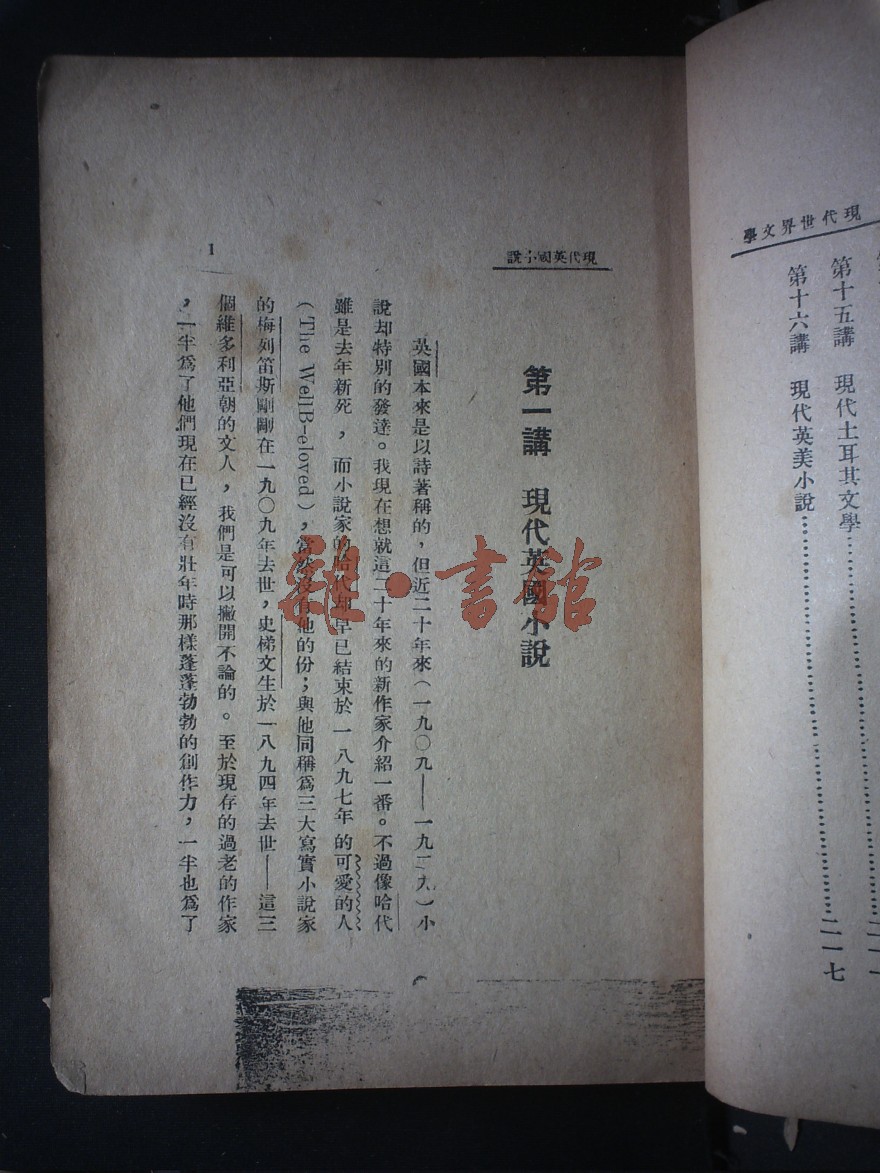 現代世界文學
第十五講　現代土耳其文學
第十六講　現代英美小說……二一七
現代英國小說
第一講　現代英國小說
英國本來是以詩著稱的，但近二十年來（一九〇九——一九二九）小
說却特別的發達。我現在想就這二十年來的新作家介紹一番。不過像哈代
雖是去年新死，而小說家的哈代却早已結束於一八九七年的可愛的人
（The WellB-eloved），當然沒有他的份；與他同稱爲三大寫實小說家
的梅列笛斯剛剛在一九〇九年去世，史梯文生於一八九四年去世——這三
個維多利亞朝的文人，我們是可以撇開不論的。至於現存的過老的作家
，一半爲了他們現在已經沒有壯年時那樣蓬蓬勃勃的創作力，一半也爲了
1
雜·書館